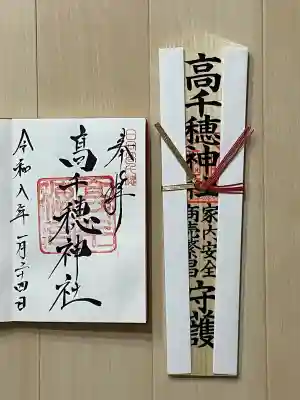 奉拝
高千穂神社
令和八年一月二十四日
高千穂神社
家内安全
商売繁昌
守護